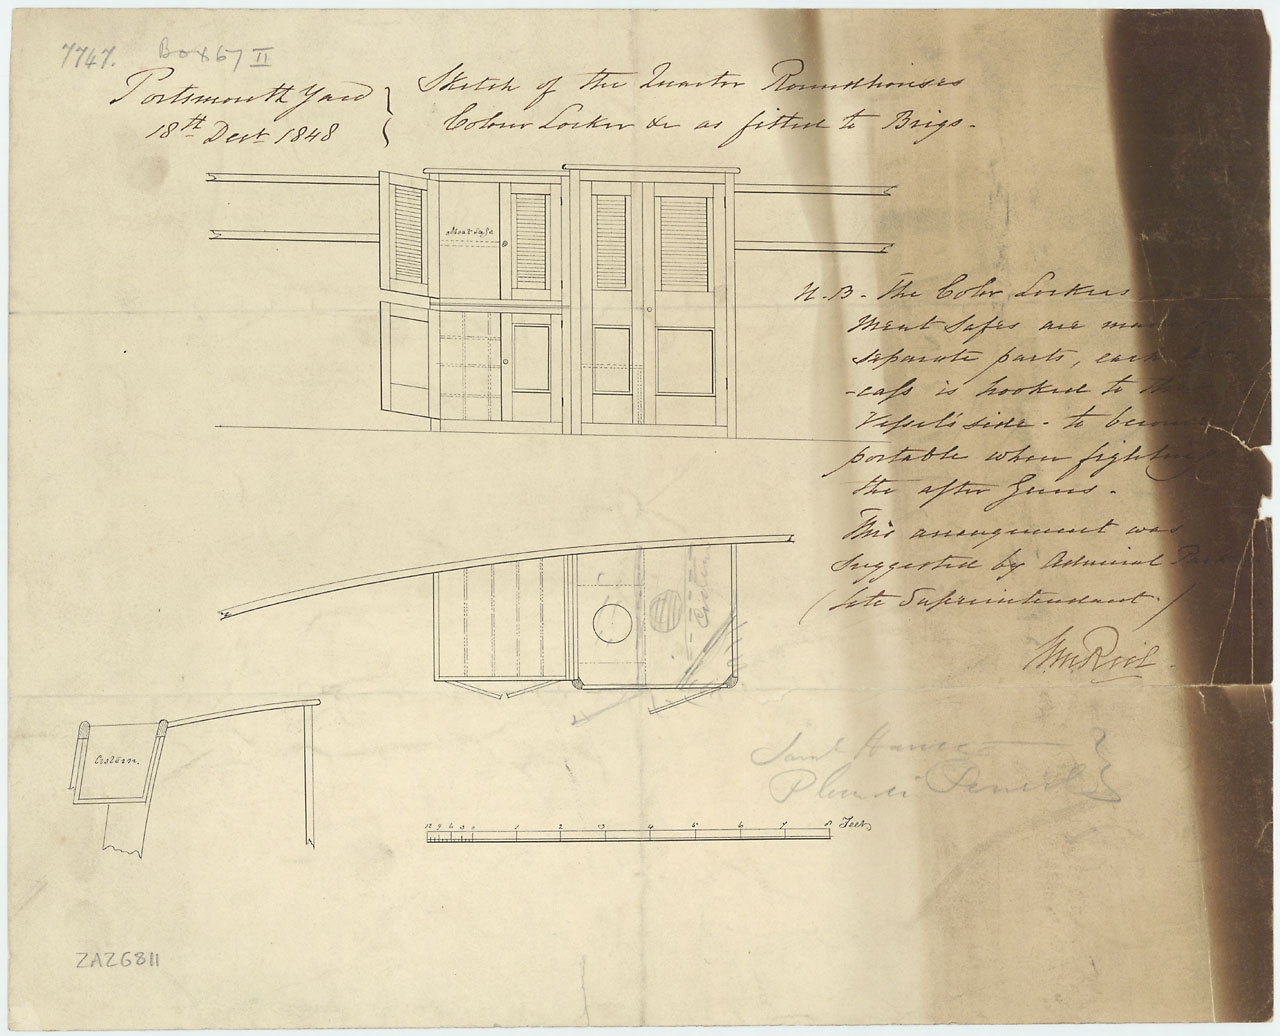 7747. Box 67 II
Portsmouth Yard
18th Decr 1848
Sketch of the Quarter Roundhouses
Colour Locker &c as fitted to Brigs.
Meat Safe
N.B. The Color Lockers
Meat Safes are made in
separate parts, each
-cass is hooked to the
Vessel's side - to become
portable when fighting
the after Guns.
This arrangement was
suggested by Admiral Parker
(late Superintendant.)
Cistern
Cistern.
12 9 6 3 0 1 2 3 4 5 6 7 8 Feet
ZAZ6811